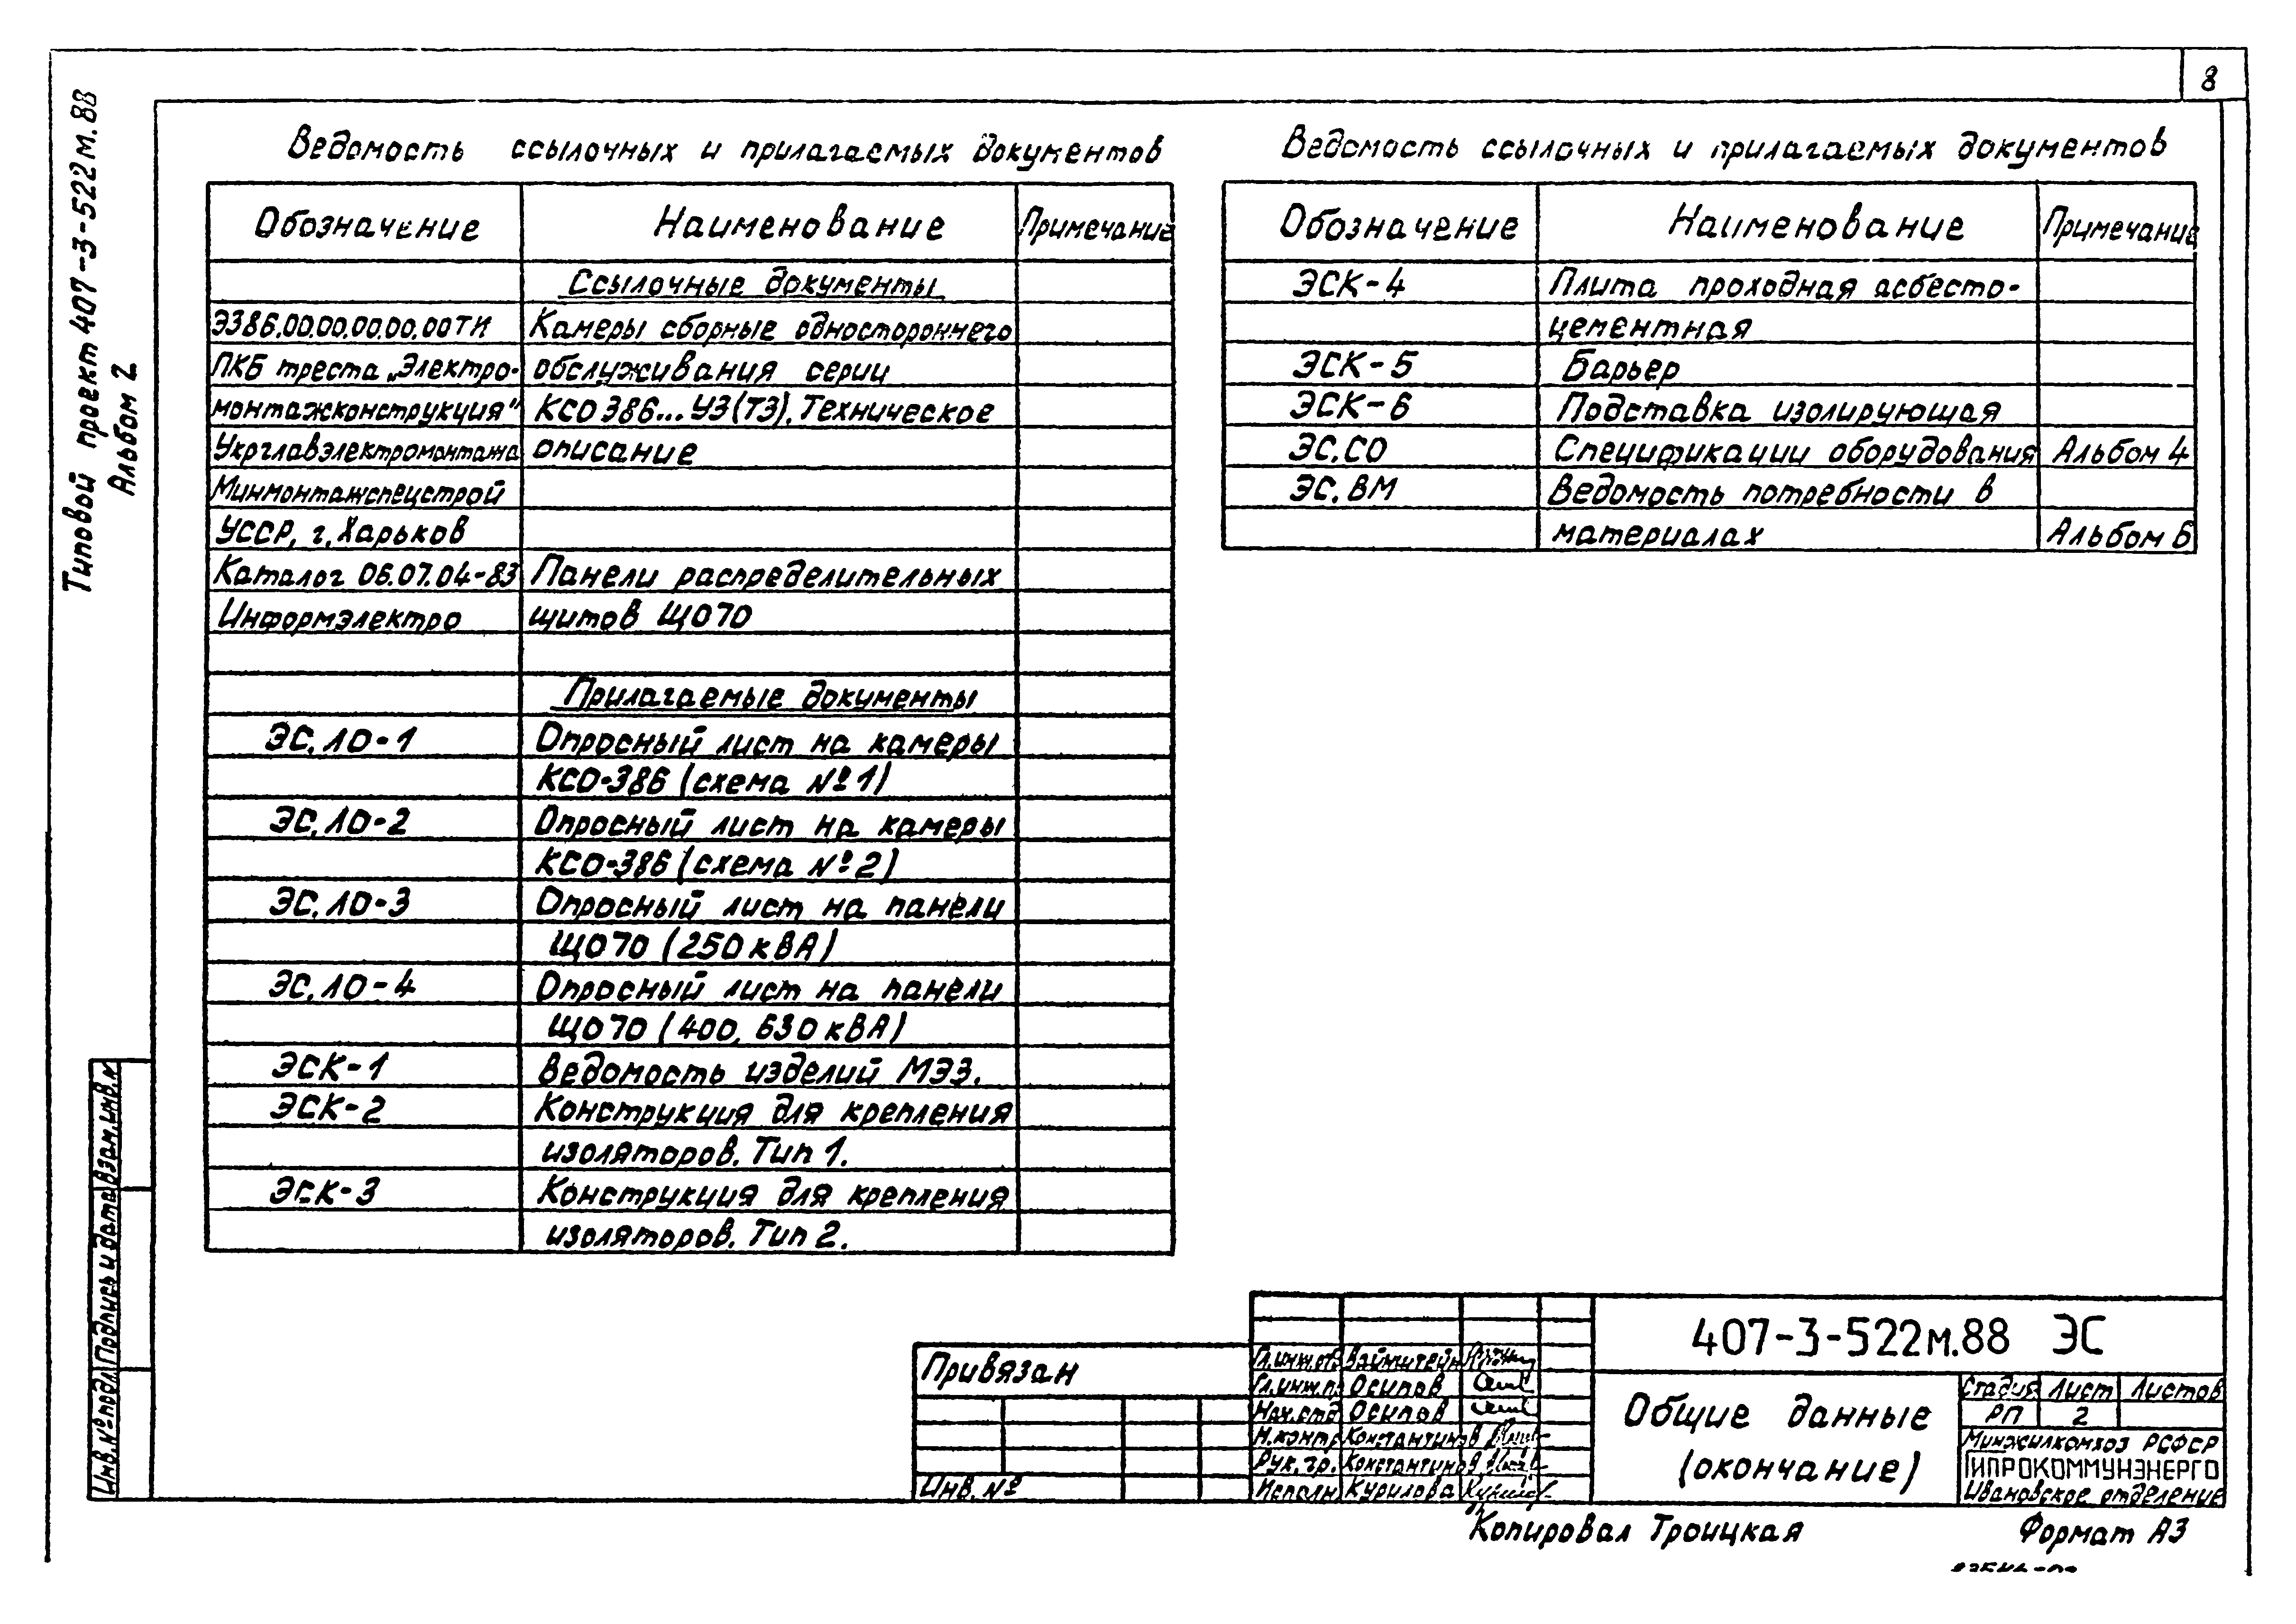 8
Типовой проект 407-3-522м.88
Альбом 2
Ведомость ссылочных и прилагаемых документов
Обозначение Наименование Примечание
Ссылочные документы
ЭЗ86.00.00.00.00.00ТИ Камеры сборные одностороннего
ПКБ треста „Электро- обслуживания серии
монтажконструкция" КСО 386...У3(Т3). Техническое
Укрглавэлектромонтажа описание
Минмонтажспецстрой
УССР, г. Харьков
Каталог 06.07.04-83 Панели распределительных
Информэлектро щитов ЩО70
Прилагаемые документы
ЭС.ЛО-1 Опросный лист на камеры
КСО-386 (схема №1)
ЭС.ЛО-2 Опросный лист на камеры
КСО-386 (схема №2)
ЭС.ЛО-3 Опросный лист на панели
ЩО70 (250кВА)
ЭС.ЛО-4 Опросный лист на панели
ЩО70 (400, 630кВА)
ЭСК-1 Ведомость изделий МЭЗ.
ЭСК-2 Конструкция для крепления
изоляторов. Тип 1.
ЭСК-3 Конструкция для крепления
изоляторов. Тип 2.
Ведомость ссылочных и прилагаемых документов
Обозначение Наименование Примечание
ЭСК-4 Плита проходная асбесто-
цементная
ЭСК-5 Барьер
ЭСК-6 Подставка изолирующая
ЭС.СО Спецификации оборудования Альбом 4
ЭС.ВМ Ведомость потребности в
материалах Альбом 6
Инв.№подл Подпись и дата Взам.инв.№
Привязан
Инв.№
Гл.инж.от. Вайнштейн
Гл.инж.п. Осипов
Нач.отд Осипов
Н.контр Константинов
Рук.гр. Константинов
Исполн Курилова
407-3-522м.88 ЭС
Общие данные
(окончание)
Стадия Лист Листов
РП 2
Минжилкомхоз РСФСР
ГИПРОКОММУНЭНЕРГО
Ивановское отделение
Копировал Троицкая Формат А3